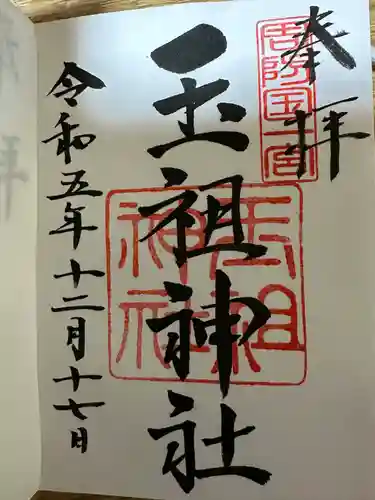 奉拝
周防国一宮
玉祖神社
玉祖神社
令和五年十二月十七日